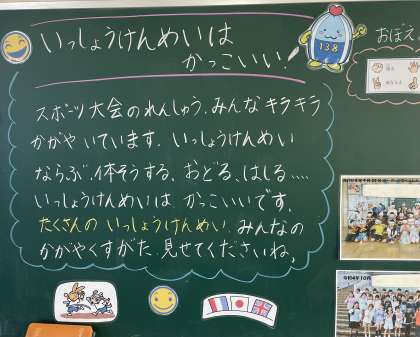 いっしょうけんめいは
かっこいい!
138
おぼえ
スポーツ大会のれんしゅう、みんなキラキラ
かがやいています。いっしょうけんめい
ならぶ、体そうする、おどる、はしる....
いっしょうけんめいは かっこいいです。
たくさんの いっしょうけんめい、みんなの
かがやくすがた、見せてくださいね。